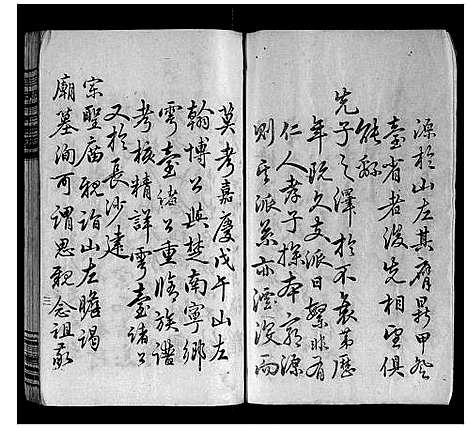 源於山左其膺鼎甲登
臺省者後先相望俱
能繇
先子之澤於不衰第歷
年既久支派日繁非有
仁人孝子探本窮源
則其派系亦湮沒而
莫考嘉慶戊午山左
翰博公與楚南寧鄉
雩臺諸公重脩族譜
考核精詳雩臺諸公
又於長沙建
宗聖廟親詣山左瞻謁
廟墓洵可謂思親念祖敬
三